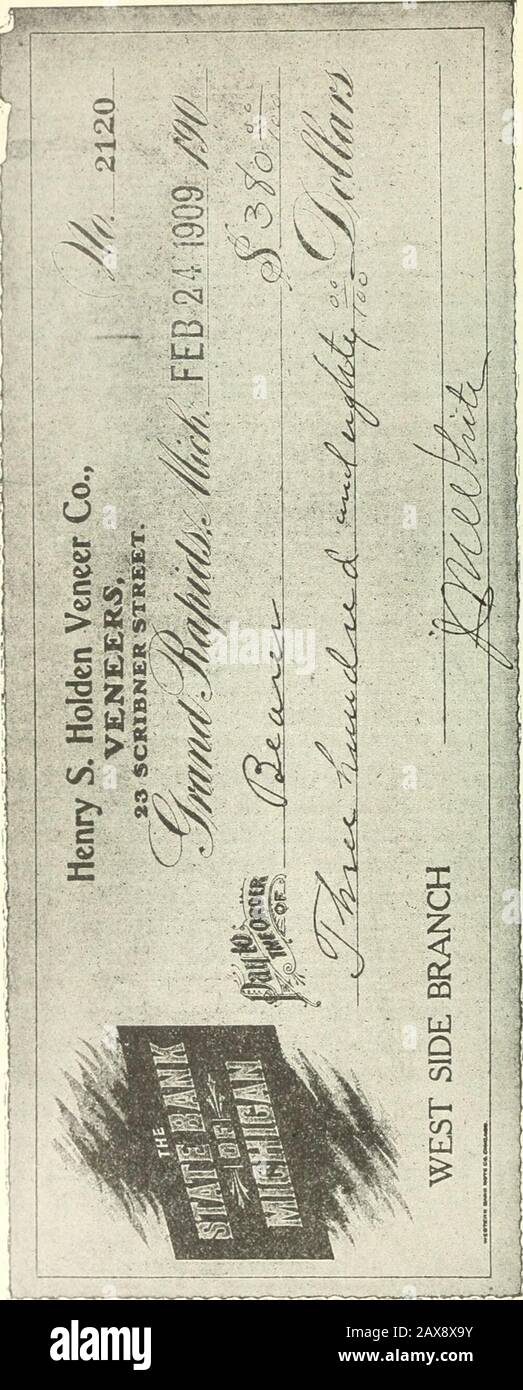 Henry S. Holden Veneer Co.,
VENEERS,
23 SCRIBNER STREET.
No. 2120
Grand Rapids, Mich. FEB 24 1909 190
THE
STATE BANK
OF
MICHIGAN
Pay to
THE ORDER
OF
Bearer $380 00/100
Three hundred and eighty 00/100 Dollars
WEST SIDE BRANCH
White
WESTERN BANK NOTE CO. CHICAGO.
alamy
alamy
Image ID: 2AX8X9Y
www.alamy.com